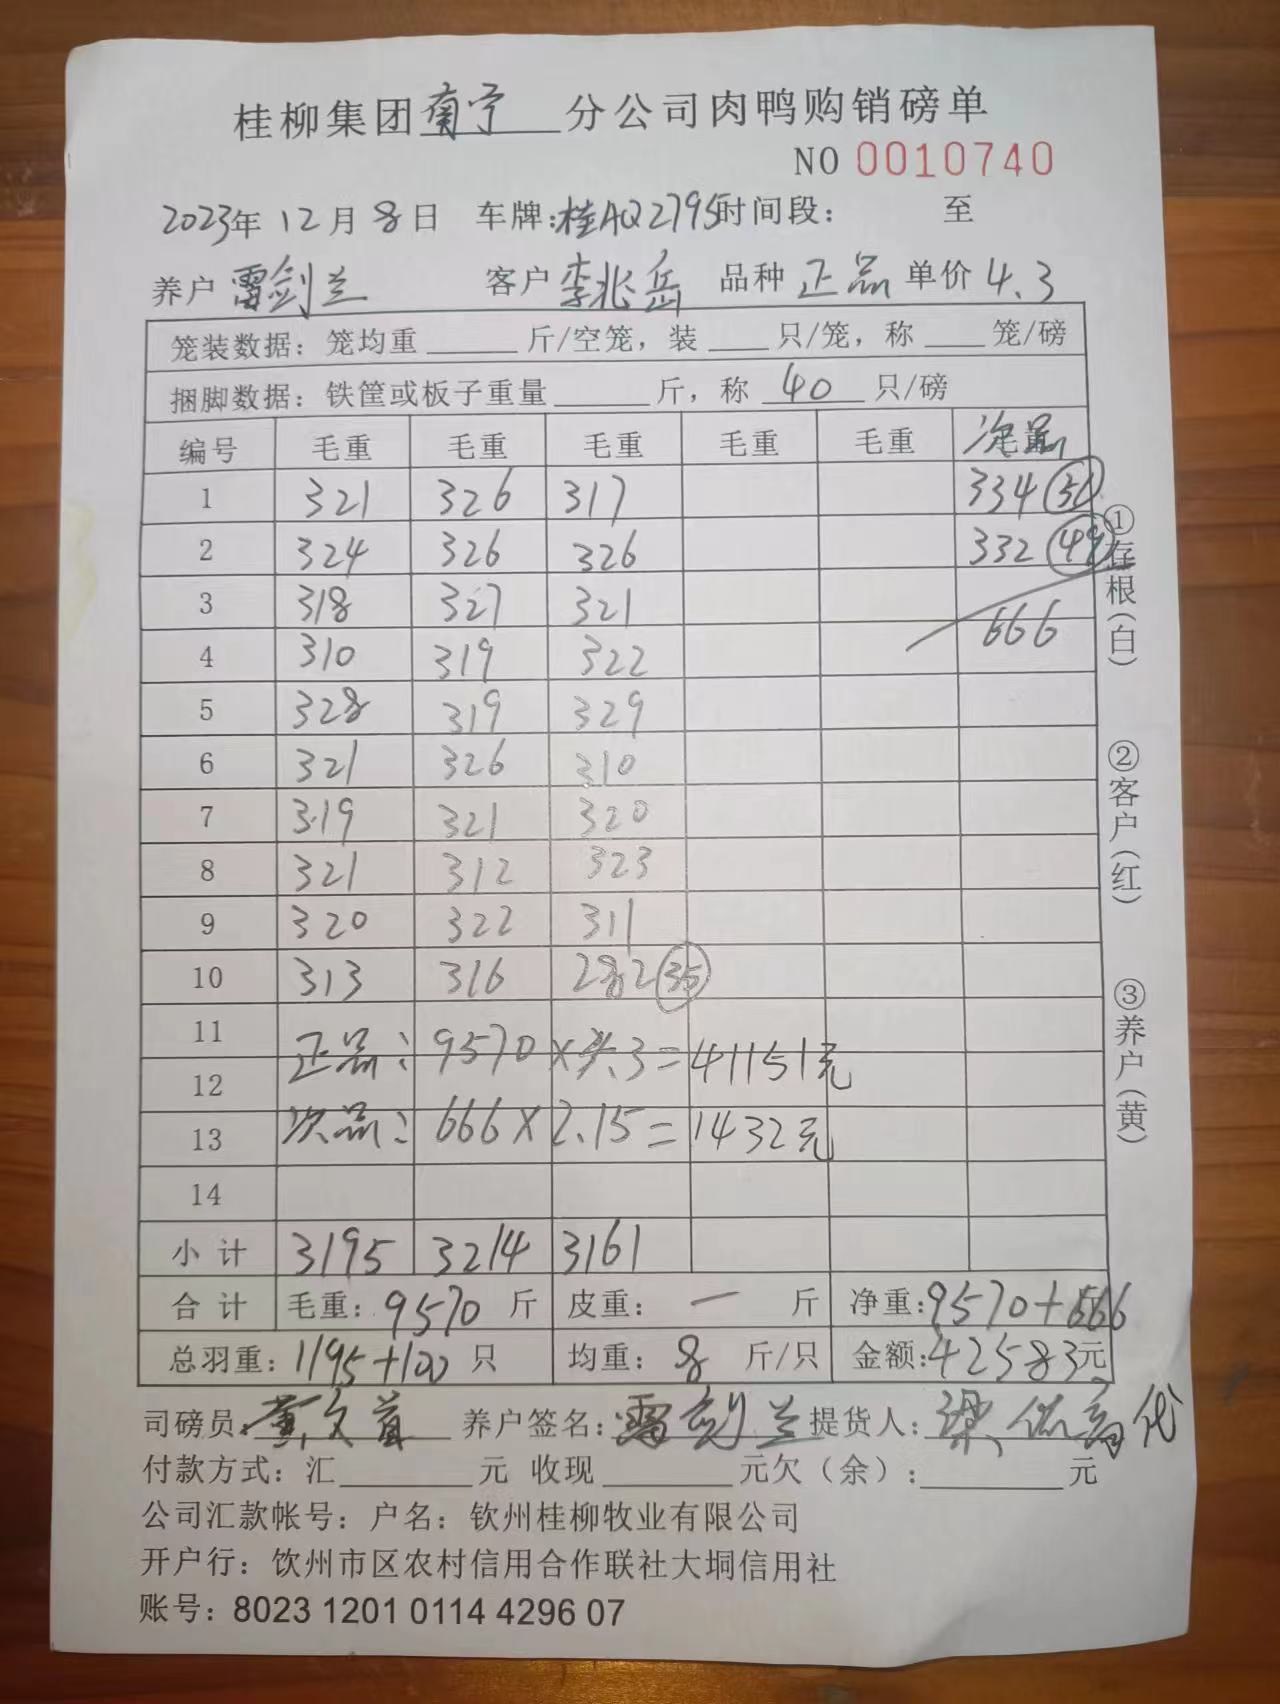 桂柳集团南宁分公司肉鸭购销磅单
NO 0010740
2023年12月8日 车牌:桂AQ2795时间段: 至
养户 雷剑兰 客户 李兆岳 品种 正品 单价 4.3
笼装数据: 笼均重 斤/空笼, 装 只/笼, 称 笼/磅
捆脚数据: 铁筐或板子重量 斤, 称 40 只/磅
编号 毛重 毛重 毛重 毛重 毛重 次品
1 321 326 317 334 (51)
2 324 326 326 332 (49)
3 318 327 321
4 310 319 322 666
5 328 319 329
6 321 326 310
7 319 321 320
8 321 312 323
9 320 322 311
10 313 316 282 (35)
11
正品: 9570×4.3=41151元
12
13 次品: 666×2.15=1432元
14
小计 3195 3214 3161
合计 毛重: 9570 斤 皮重: — 斤 净重: 9570+666
总羽重: 1195+100 只 均重: 8 斤/只 金额: 42583元
司磅员: 黄文 养户签名: 雷剑兰 提货人: 梁 代
付款方式: 汇 元 收现 元欠(余): 元
公司汇款帐号: 户名: 钦州桂柳牧业有限公司
开户行: 钦州市区农村信用合作联社大垌信用社
账号: 8023 1201 0114 4296 07
①存根(白)
②客户(红)
③养户(黄)